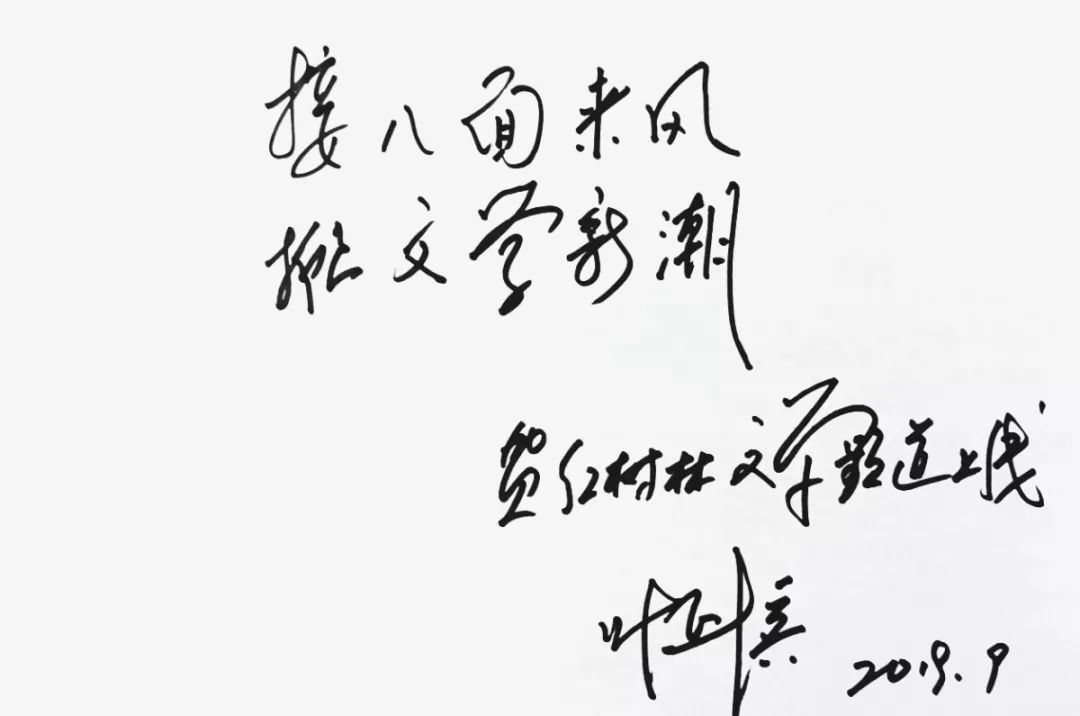 接八面来风
掀文学新潮
贺红树林文学频道上线
叶延滨 2019.9